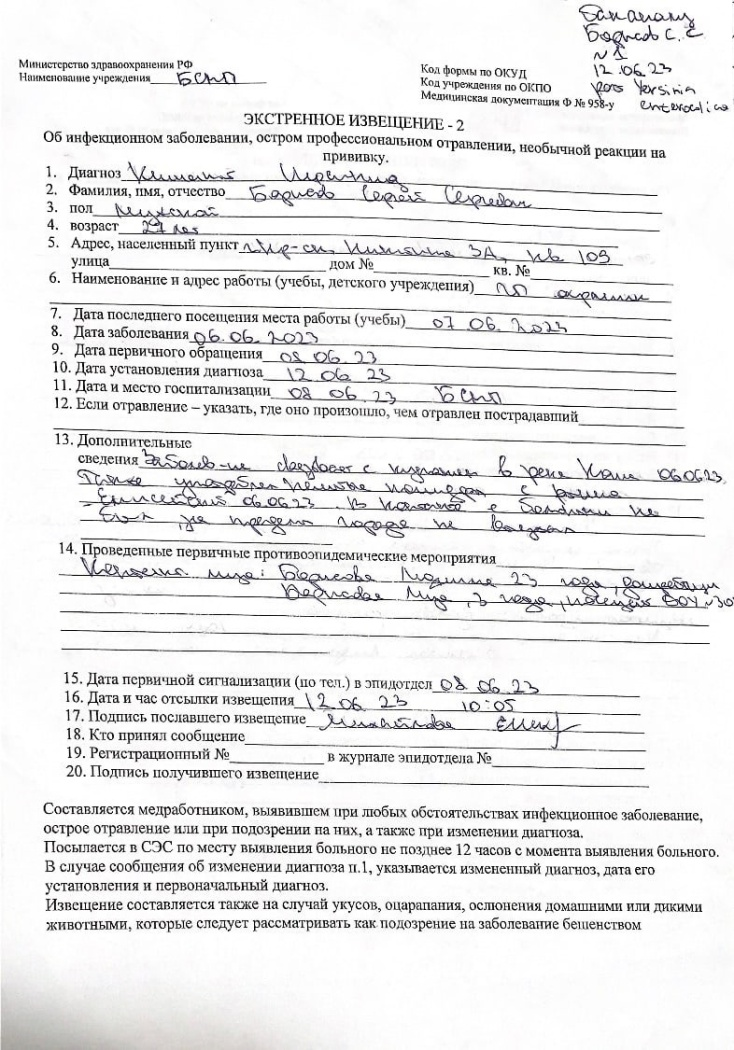 Борисов С. С
№1
12.06.23
рост Yersinia
enterocolica
Министерство здравоохранения РФ
Наименование учреждения БСНП
Код формы по ОКУД
Код учреждения по ОКПО
Медицинская документация Ф № 958-у
ЭКСТРЕННОЕ ИЗВЕЩЕНИЕ - 2
Об инфекционном заболевании, остром профессиональном отравлении, необычной реакции на
прививку.
1. Диагноз Кишечный Иерсиниоз
2. Фамилия, имя, отчество Борисов Сергей Сергеевич
3. пол Мужской
4. возраст 27 лет
5. Адрес, населенный пункт Никитина 3А, кв 109
улица дом № кв. №
6. Наименование и адрес работы (учебы, детского учреждения) охранник
7. Дата последнего посещения места работы (учебы) 07 06. 2023
8. Дата заболевания 06.06.2023
9. Дата первичного обращения 08 06 23
10. Дата установления диагноза 12 06 23
11. Дата и место госпитализации 08 06. 23 БСНП
12. Если отравление – указать, где оно произошло, чем отравлен пострадавший
13. Дополнительные
сведения Заболев-ие связывает с купанием в реке Кама 06.06.23
Также употреблял немытые помидоры с рынка
06.06.23. В контакте с больными не
был, за пределы города не выезжал
14. Проведенные первичные противоэпидемические мероприятия
Контактн лица: Борисова 23 года,
Борисова 3 года, посещает ДОУ
15. Дата первичной сигнализации (по тел.) в эпидотдел 08 06 23
16. Дата и час отсылки извещения 12 06 23 10:05
17. Подпись пославшего извещение Михайлова
18. Кто принял сообщение
19. Регистрационный № в журнале эпидотдела №
20. Подпись получившего извещение
Составляется медработником, выявившем при любых обстоятельствах инфекционное заболевание,
острое отравление или при подозрении на них, а также при изменении диагноза.
Посылается в СЭС по месту выявления больного не позднее 12 часов с момента выявления больного.
В случае сообщения об изменении диагноза п.1, указывается измененный диагноз, дата его
установления и первоначальный диагноз.
Извещение составляется также на случай укусов, оцарапания, ослюнения домашними или дикими
животными, которые следует рассматривать как подозрение на заболевание бешенством